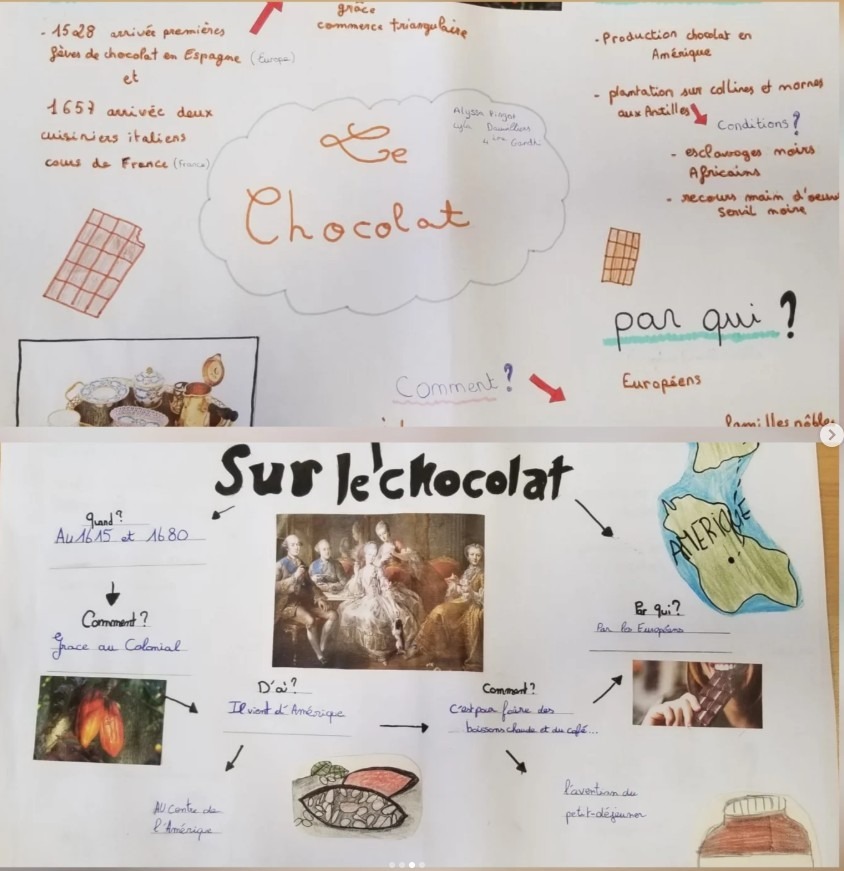 grâce
commerce triangulaire
- 1528 arrivée premières
fèves de chocolat en Espagne (Europe)
et
1657 arrivée deux
cuisiniers italiens
cour de France (France)
- Production chocolat en
Amérique
- plantation sur collines et mornes
aux Antilles
Conditions ?
- esclavages noirs
Africains
- recours main d'oeuv
Servil noire
Le
Chocolat
par qui ?
Européens
Comment ?
familles nobles
Sur le chocolat
Quand ?
Au 1615 et 1680
Comment ?
Grace au Colonial
AMERIQUE
Par qui ?
Par les Européens
D'où ?
Il vient d'Amérique
Comment ?
C'est pour faire des
boissons chaude et du café...
AU centre de
l'Amérique
l'avention du
petit-déjeuner